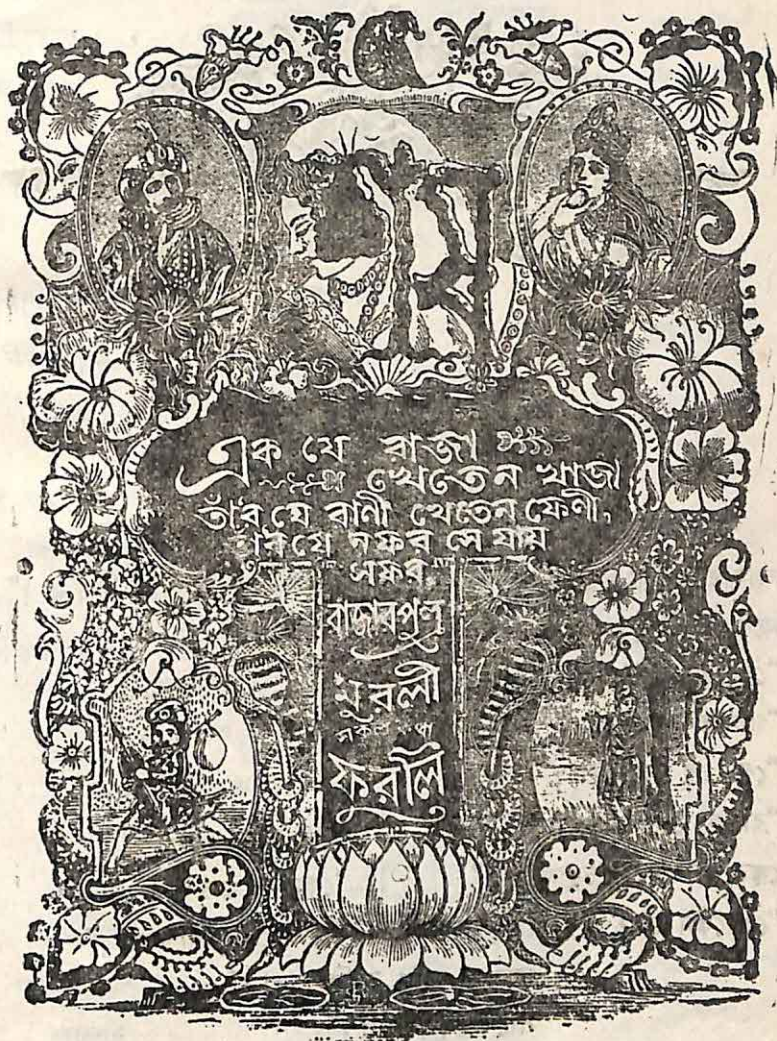 এক যে রাজা
খেতেন খাজা
তাঁর যে রানী খেতেন ফেণী,
যে সফর সে যায়
সফর,
রাজারপুল
মুরলী
সকল
ফুরলি